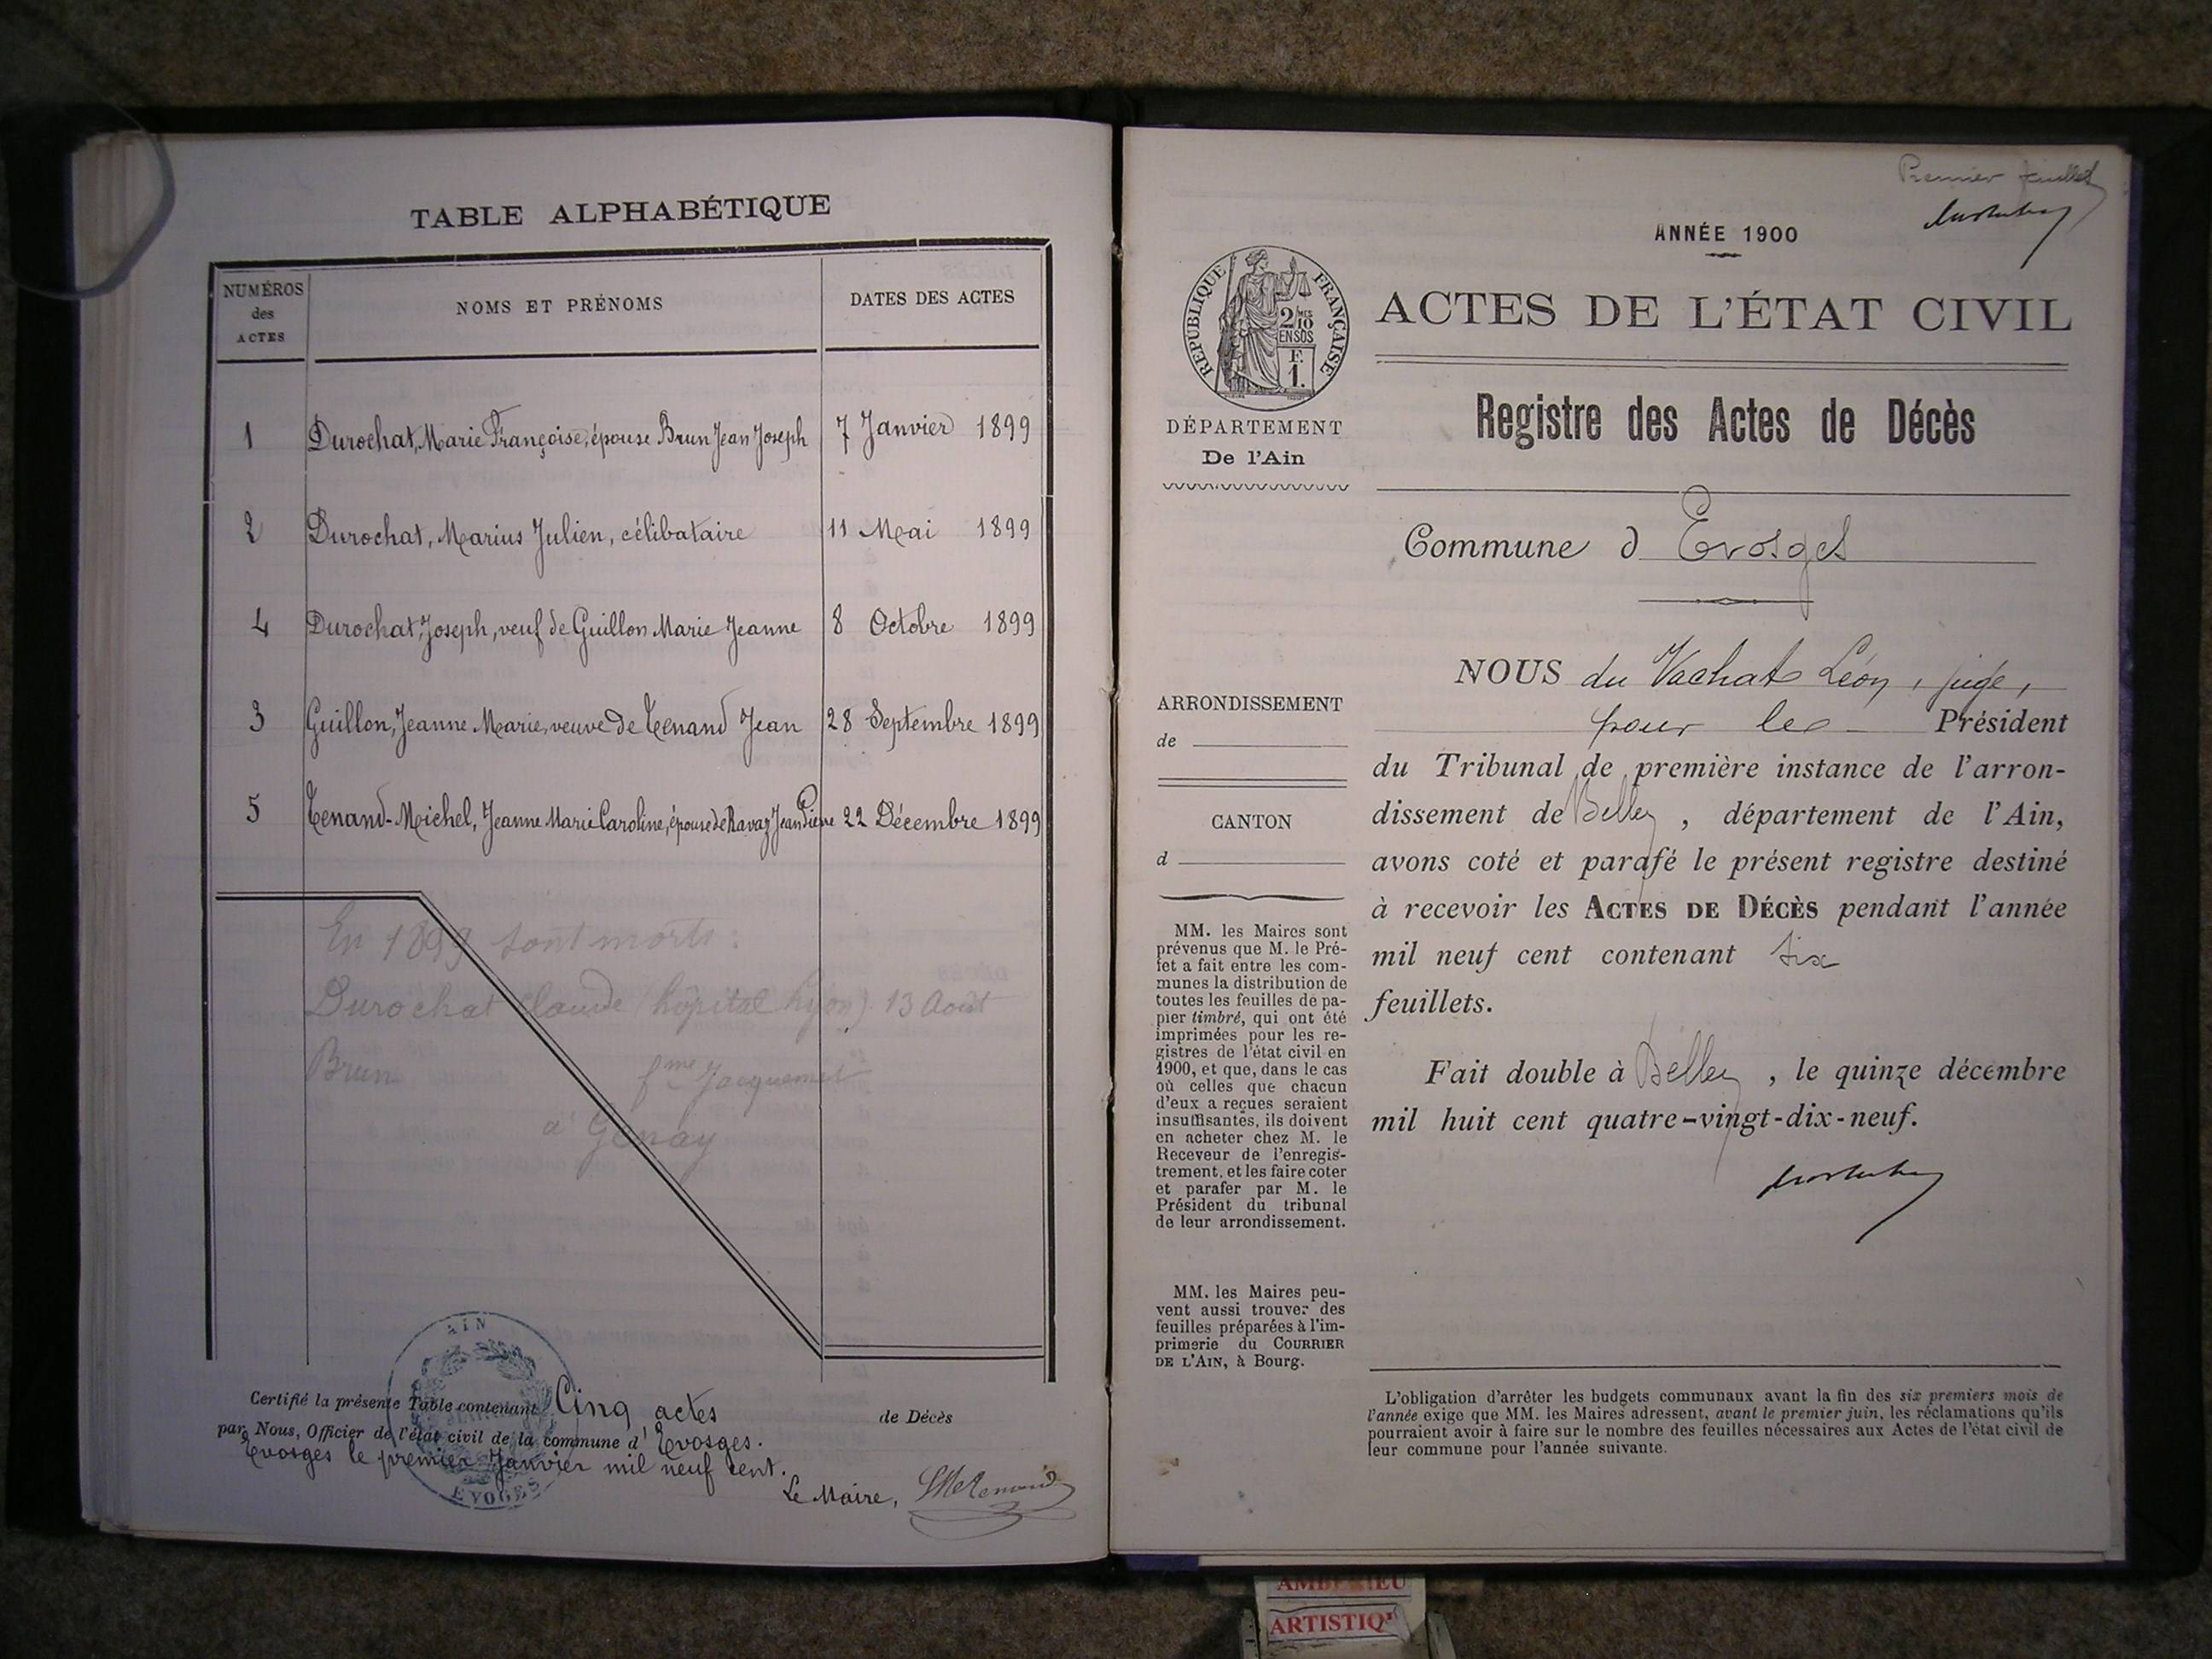 TABLE ALPHABÉTIQUE
NUMÉROS des ACTES
NOMS ET PRÉNOMS
DATES DES ACTES
1 Durochat, Marie Françoise, épouse Brun Jean Joseph 7 Janvier 1899
2 Durochat, Marius Julien, célibataire 11 Mai 1899
4 Durochat, Joseph, veuf de Guillon Marie Jeanne 8 Octobre 1899
3 Guillon, Jeanne Marie, veuve de Tenand Jean 28 Septembre 1899
5 Tenand-Michel, Jeanne Marie Caroline, épouse de Ravaz Jean Pierre 22 Décembre 1899
En 1899 sont morts :
Durochat Claude (hôpital Lyon) 13 Août
Brun fme Jacquemet
à Genay
AIN
EVOGES
Certifié la présente Table contenant Cinq actes de Décès
par Nous, Officier de l'état civil de la commune d'Evosges.
Evosges le premier Janvier mil neuf cent.
Le Maire,
Premier feuillet
ANNÉE 1900
RÉPUBLIQUE FRANÇAISE
2/10 EN SUS
F. 1.
ACTES DE L'ÉTAT CIVIL
DÉPARTEMENT
De l'Ain
Registre des Actes de Décès
Commune d Evosges
NOUS du Vachat Léon, juge,
pour le Président
du Tribunal de première instance de l'arron-
dissement de Belley, département de l'Ain,
avons coté et parafé le présent registre destiné
à recevoir les ACTES DE DÉCÈS pendant l'année
mil neuf cent contenant six
feuillets.
Fait double à Belley, le quinze décembre
mil huit cent quatre-vingt-dix-neuf.
ARRONDISSEMENT
de
CANTON
d
MM. les Maires sont
prévenus que M. le Pré-
fet a fait entre les com-
munes la distribution de
toutes les feuilles de pa-
pier timbré, qui ont été
imprimées pour les re-
gistres de l'état civil en
1900, et que, dans le cas
où celles que chacun
d'eux a reçues seraient
insuffisantes, ils doivent
en acheter chez M. le
Receveur de l'enregis-
trement, et les faire coter
et parafer par M. le
Président du tribunal
de leur arrondissement.
MM. les Maires peu-
vent aussi trouver des
feuilles préparées à l'im-
primerie du COURRIER
DE L'AIN, à Bourg.
L'obligation d'arrêter les budgets communaux avant la fin des six premiers mois de
l'année exige que MM. les Maires adressent, avant le premier juin, les réclamations qu'ils
pourraient avoir à faire sur le nombre des feuilles nécessaires aux Actes de l'état civil de
leur commune pour l'année suivante.
ARTISTIQ